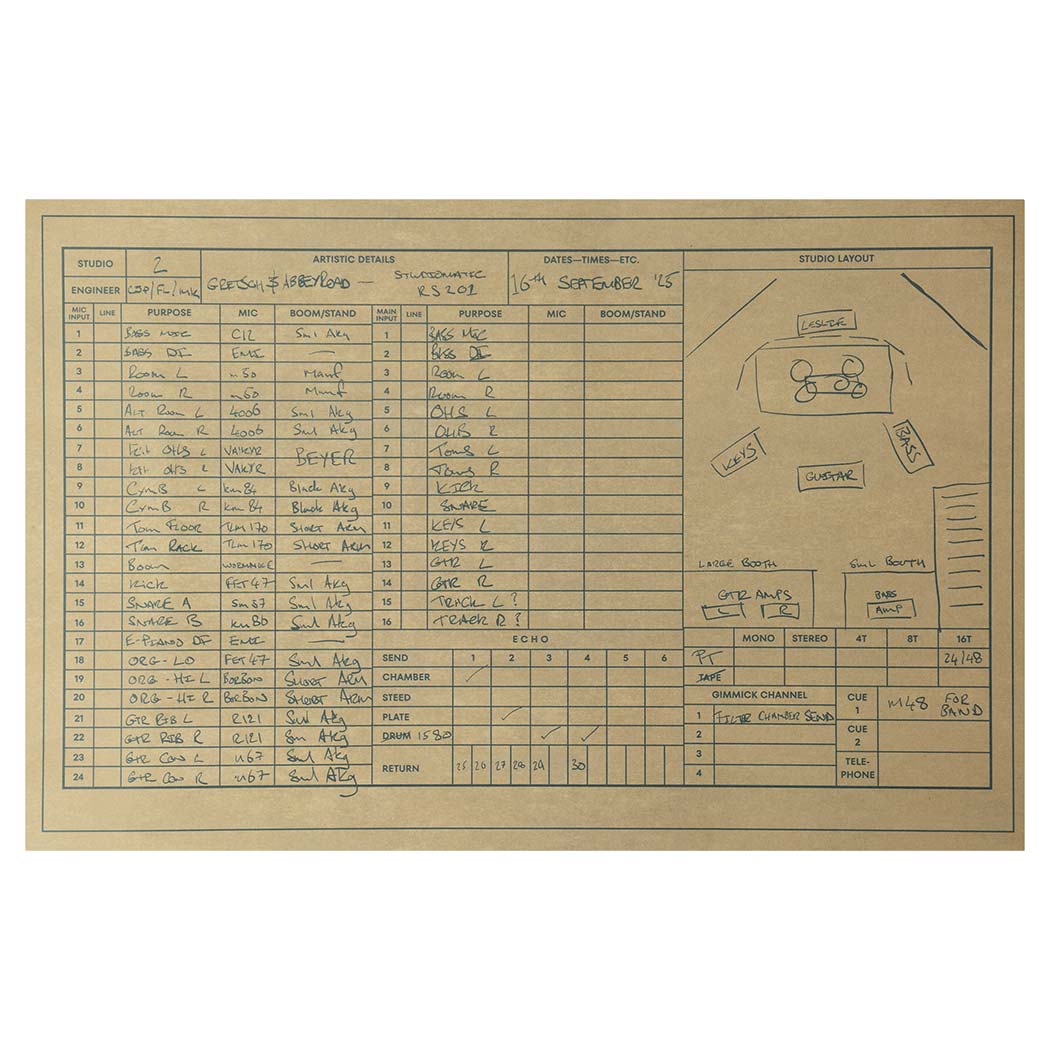 STUDIO 2 ARTISTIC DETAILS DATES—TIMES—ETC. STUDIO LAYOUT
ENGINEER GRETSCH & ABBEY ROAD — RS201 16TH SEPTEMBER '25
MIC INPUT LINE PURPOSE MIC BOOM/STAND
1 BASS MIC C12 Sml Akg
2 BASS DI EMI —
3 Room L m50 Manf
4 Room R m50 Manf
5 ALT Room L 4006 Sml Akg
6 ALT Room R 4006 Sml Akg
7 Kit OHS L VALKYR BEYER
8 Kit OHS VALKYR
9 CYMB L km84 Black Akg
10 CYMB R km84 Black Akg
11 Tom FLOOR TLM 170 SHORT ARM
12 Tom RACK TLM 170 SHORT ARM
13 Boom —
14 KICK FET 47 Sml Akg
15 SNARE A Sm57 Sml Akg
16 SNARE B Sml Akg
17 E-PIANO DI EMI —
18 ORG - LO FET 47 Sml Akg
19 ORG - HI L SHORT ARM
20 ORG - HI R SHORT ARM
21 GTR RIB L R121 Sml Akg
22 GTR RIB R R121 Sm Akg
23 GTR CON L u67 Sml Akg
24 GTR CON R u67 Sml Akg
MAIN INPUT LINE PURPOSE MIC BOOM/STAND
1 BASS MIC
2 BASS DI
3 Room L
4 Room R
5 OHS L
6 OHS R
7 Toms L
8 Toms R
9 KICK
10 SNARE
11 KEYS L
12 KEYS R
13 GTR L
14 GTR R
15 TRACK L?
16 TRACK R?
ECHO
SEND 1 2 3 4 5 6
CHAMBER
STEED
PLATE
DRUM 1580
RETURN 25 26 27 28 29 30
LESLIE
KEYS
BASS
GUITAR
LARGE BOOTH
Sml BOOTH
GTR AMPS
L R
BASS
AMP
MONO STEREO 4T 8T 16T
PT 24/48
TAPE
GIMMICK CHANNEL
1 FILTER CHAMBER SEND
2
3
4
CUE 1 M48 FOR BAND
CUE 2
TELE-PHONE